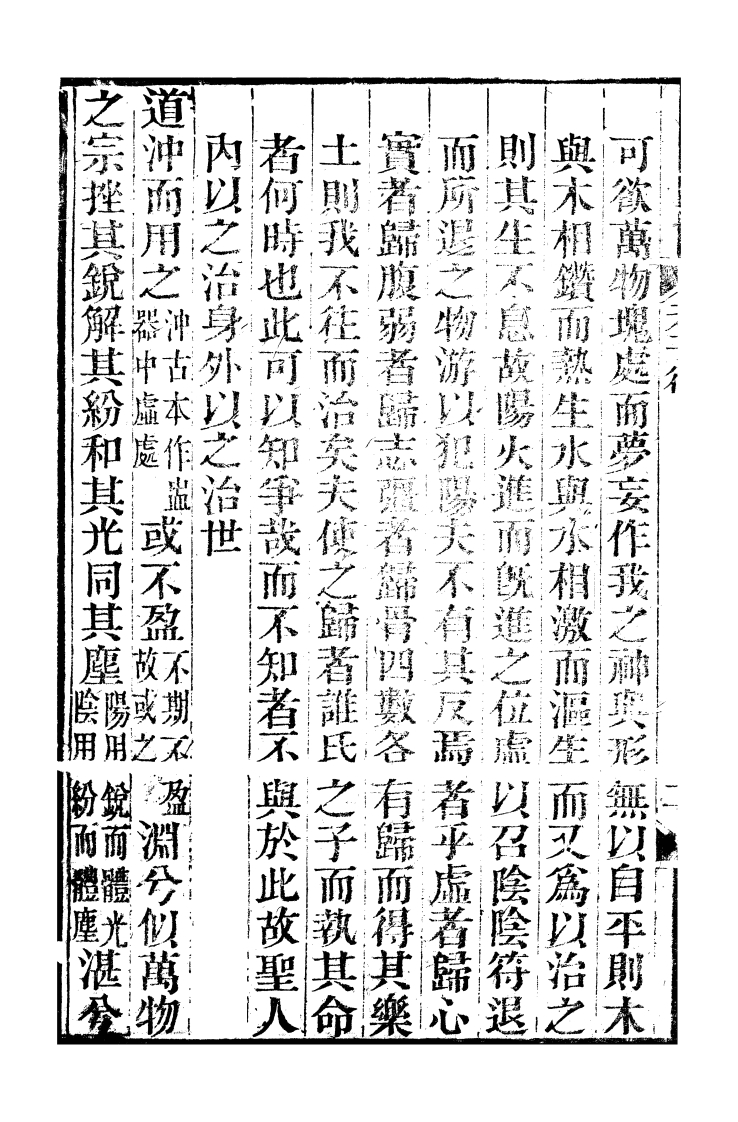 可欲萬物塊處而夢妄作我之神與形無以自平則木
與木相鑽而熱生水與水相激而漚生而又爲以治之
則其生不息故陽火進而既進之位虛以召陰陰符退
而所退之物游以犯陽夫不有其反焉者乎虛者歸心
實者歸腹弱者歸志彊者歸骨四數各有歸而得其樂
土則我不往而治矣夫使之歸者誰氏之子而執其命
者何時也此可以知爭哉而不知者不與於此故聖人
內以之治身外以之治世
道沖而用之沖古本作盅器中虛處或不盈不期不盈故或之淵兮似萬物
之宗挫其銳解其紛和其光同其塵陽用銳而體光陰用紛而體塵湛兮